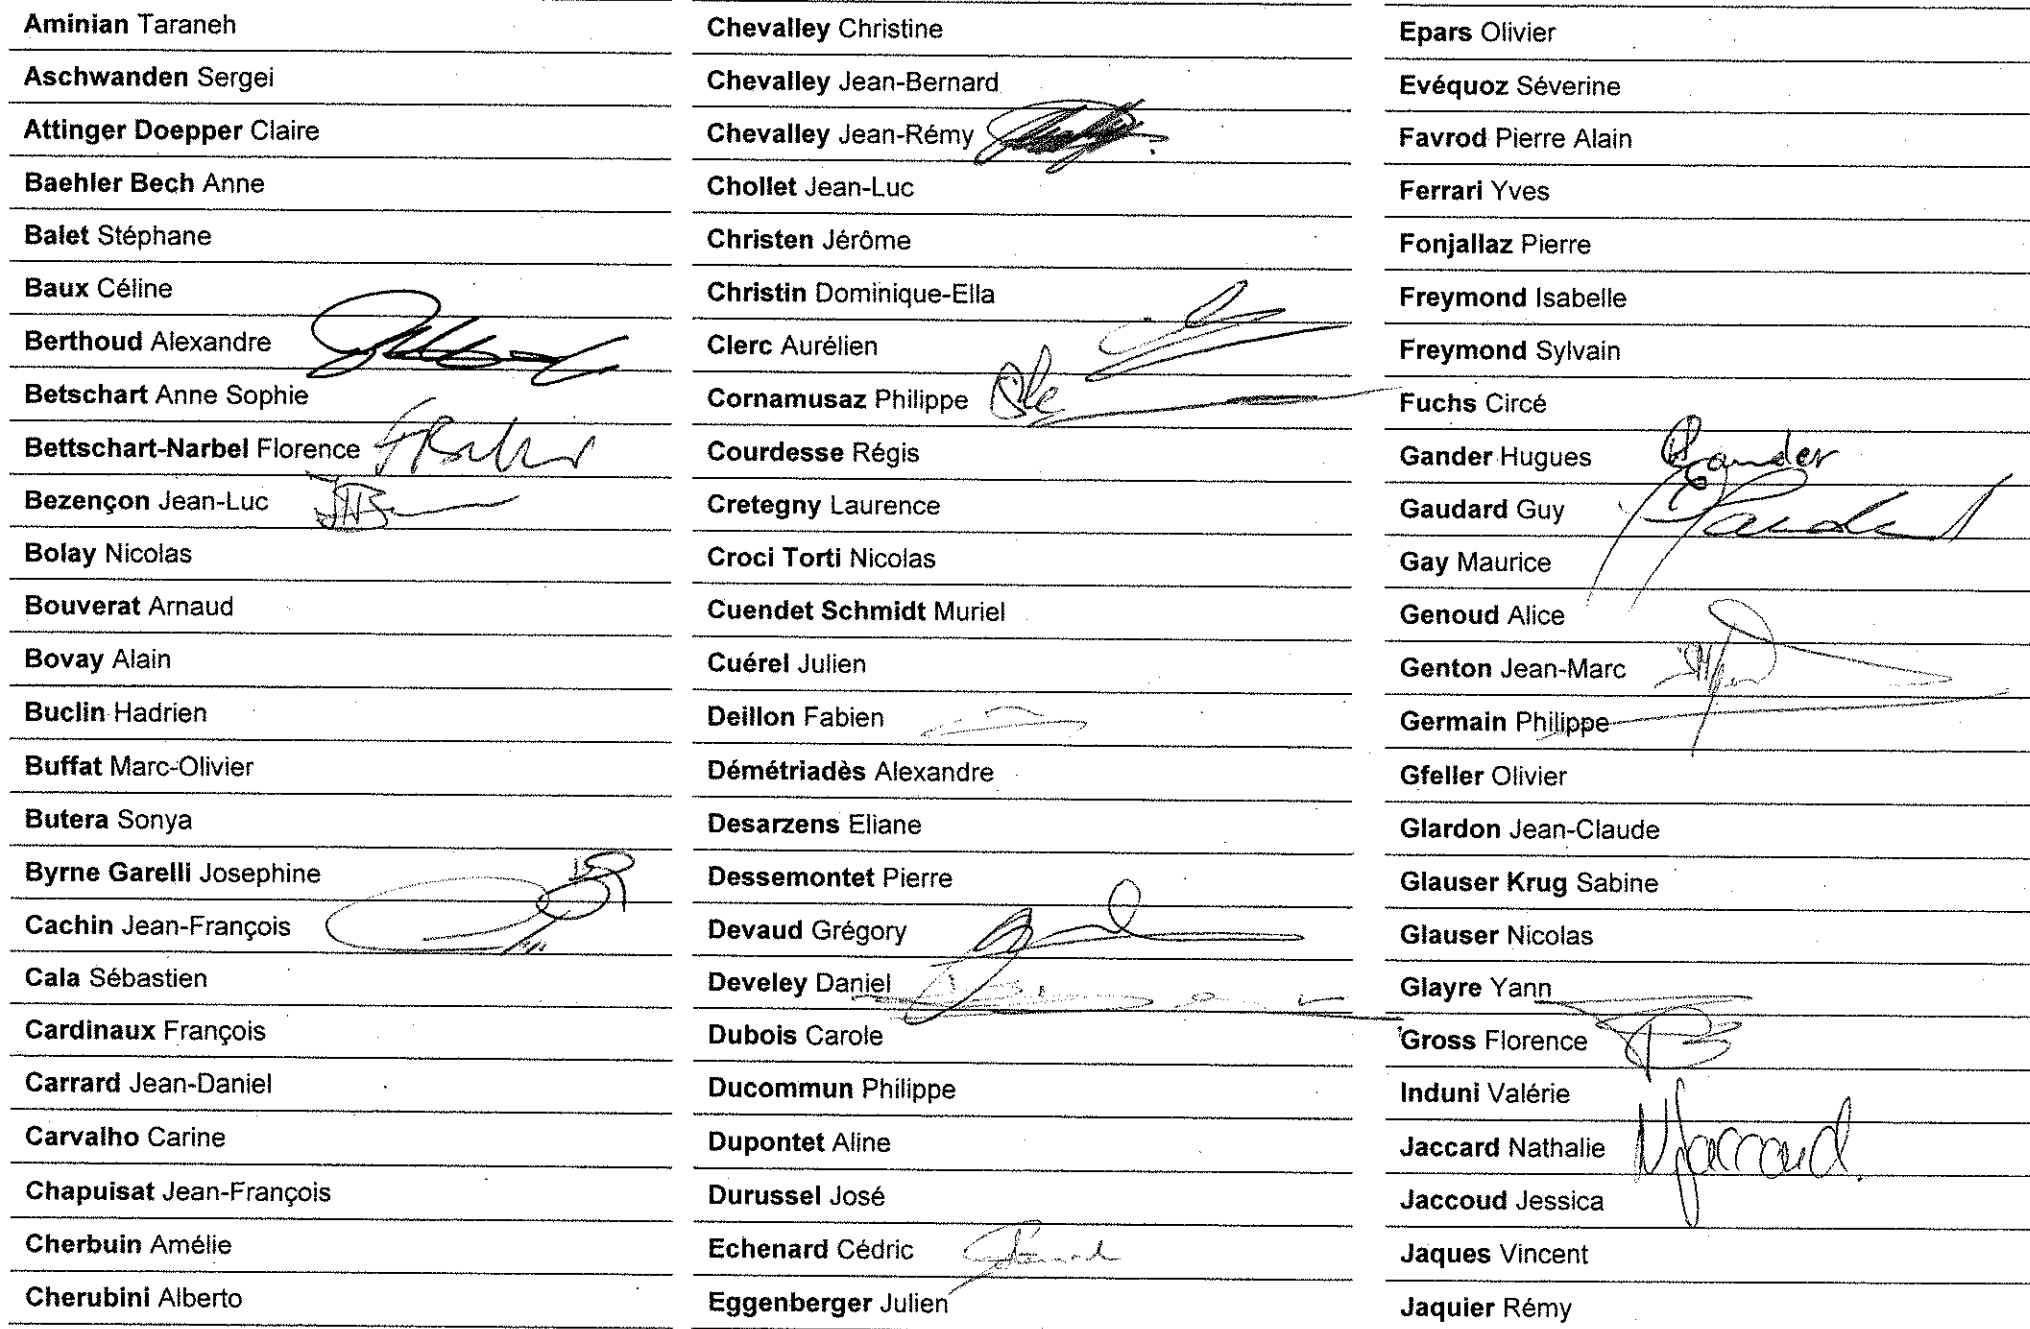 Aminian Taraneh
Aschwanden Sergei
Attinger Doepper Claire
Baehler Bech Anne
Balet Stéphane
Baux Céline
Berthoud Alexandre
Betschart Anne Sophie
Bettschart-Narbel Florence
Bezençon Jean-Luc
Bolay Nicolas
Bouverat Arnaud
Bovay Alain
Buclin Hadrien
Buffat Marc-Olivier
Butera Sonya
Byrne Garelli Josephine
Cachin Jean-François
Cala Sébastien
Cardinaux François
Carrard Jean-Daniel
Carvalho Carine
Chapuisat Jean-François
Cherbuin Amélie
Cherubini Alberto
Chevalley Christine
Chevalley Jean-Bernard
Chevalley Jean-Rémy
Chollet Jean-Luc
Christen Jérôme
Christin Dominique-Ella
Clerc Aurélien
Cornamusaz Philippe
Courdesse Régis
Cretegny Laurence
Croci Torti Nicolas
Cuendet Schmidt Muriel
Cuérel Julien
Deillon Fabien
Démétriadès Alexandre
Desarzens Eliane
Dessemontet Pierre
Devaud Grégory
Develey Daniel
Dubois Carole
Ducommun Philippe
Dupontet Aline
Durussel José
Echenard Cédric
Eggenberger Julien
Epars Olivier
Evéquoz Séverine
Favrod Pierre Alain
Ferrari Yves
Fonjallaz Pierre
Freymond Isabelle
Freymond Sylvain
Fuchs Circé
Gander Hugues Gander
Gaudard Guy
Gay Maurice
Genoud Alice
Genton Jean-Marc
Germain Philippe
Gfeller Olivier
Glardon Jean-Claude
Glauser Krug Sabine
Glauser Nicolas
Glayre Yann
Gross Florence
Induni Valérie
Jaccard Nathalie NJaccard.
Jaccoud Jessica
Jaques Vincent
Jaquier Rémy